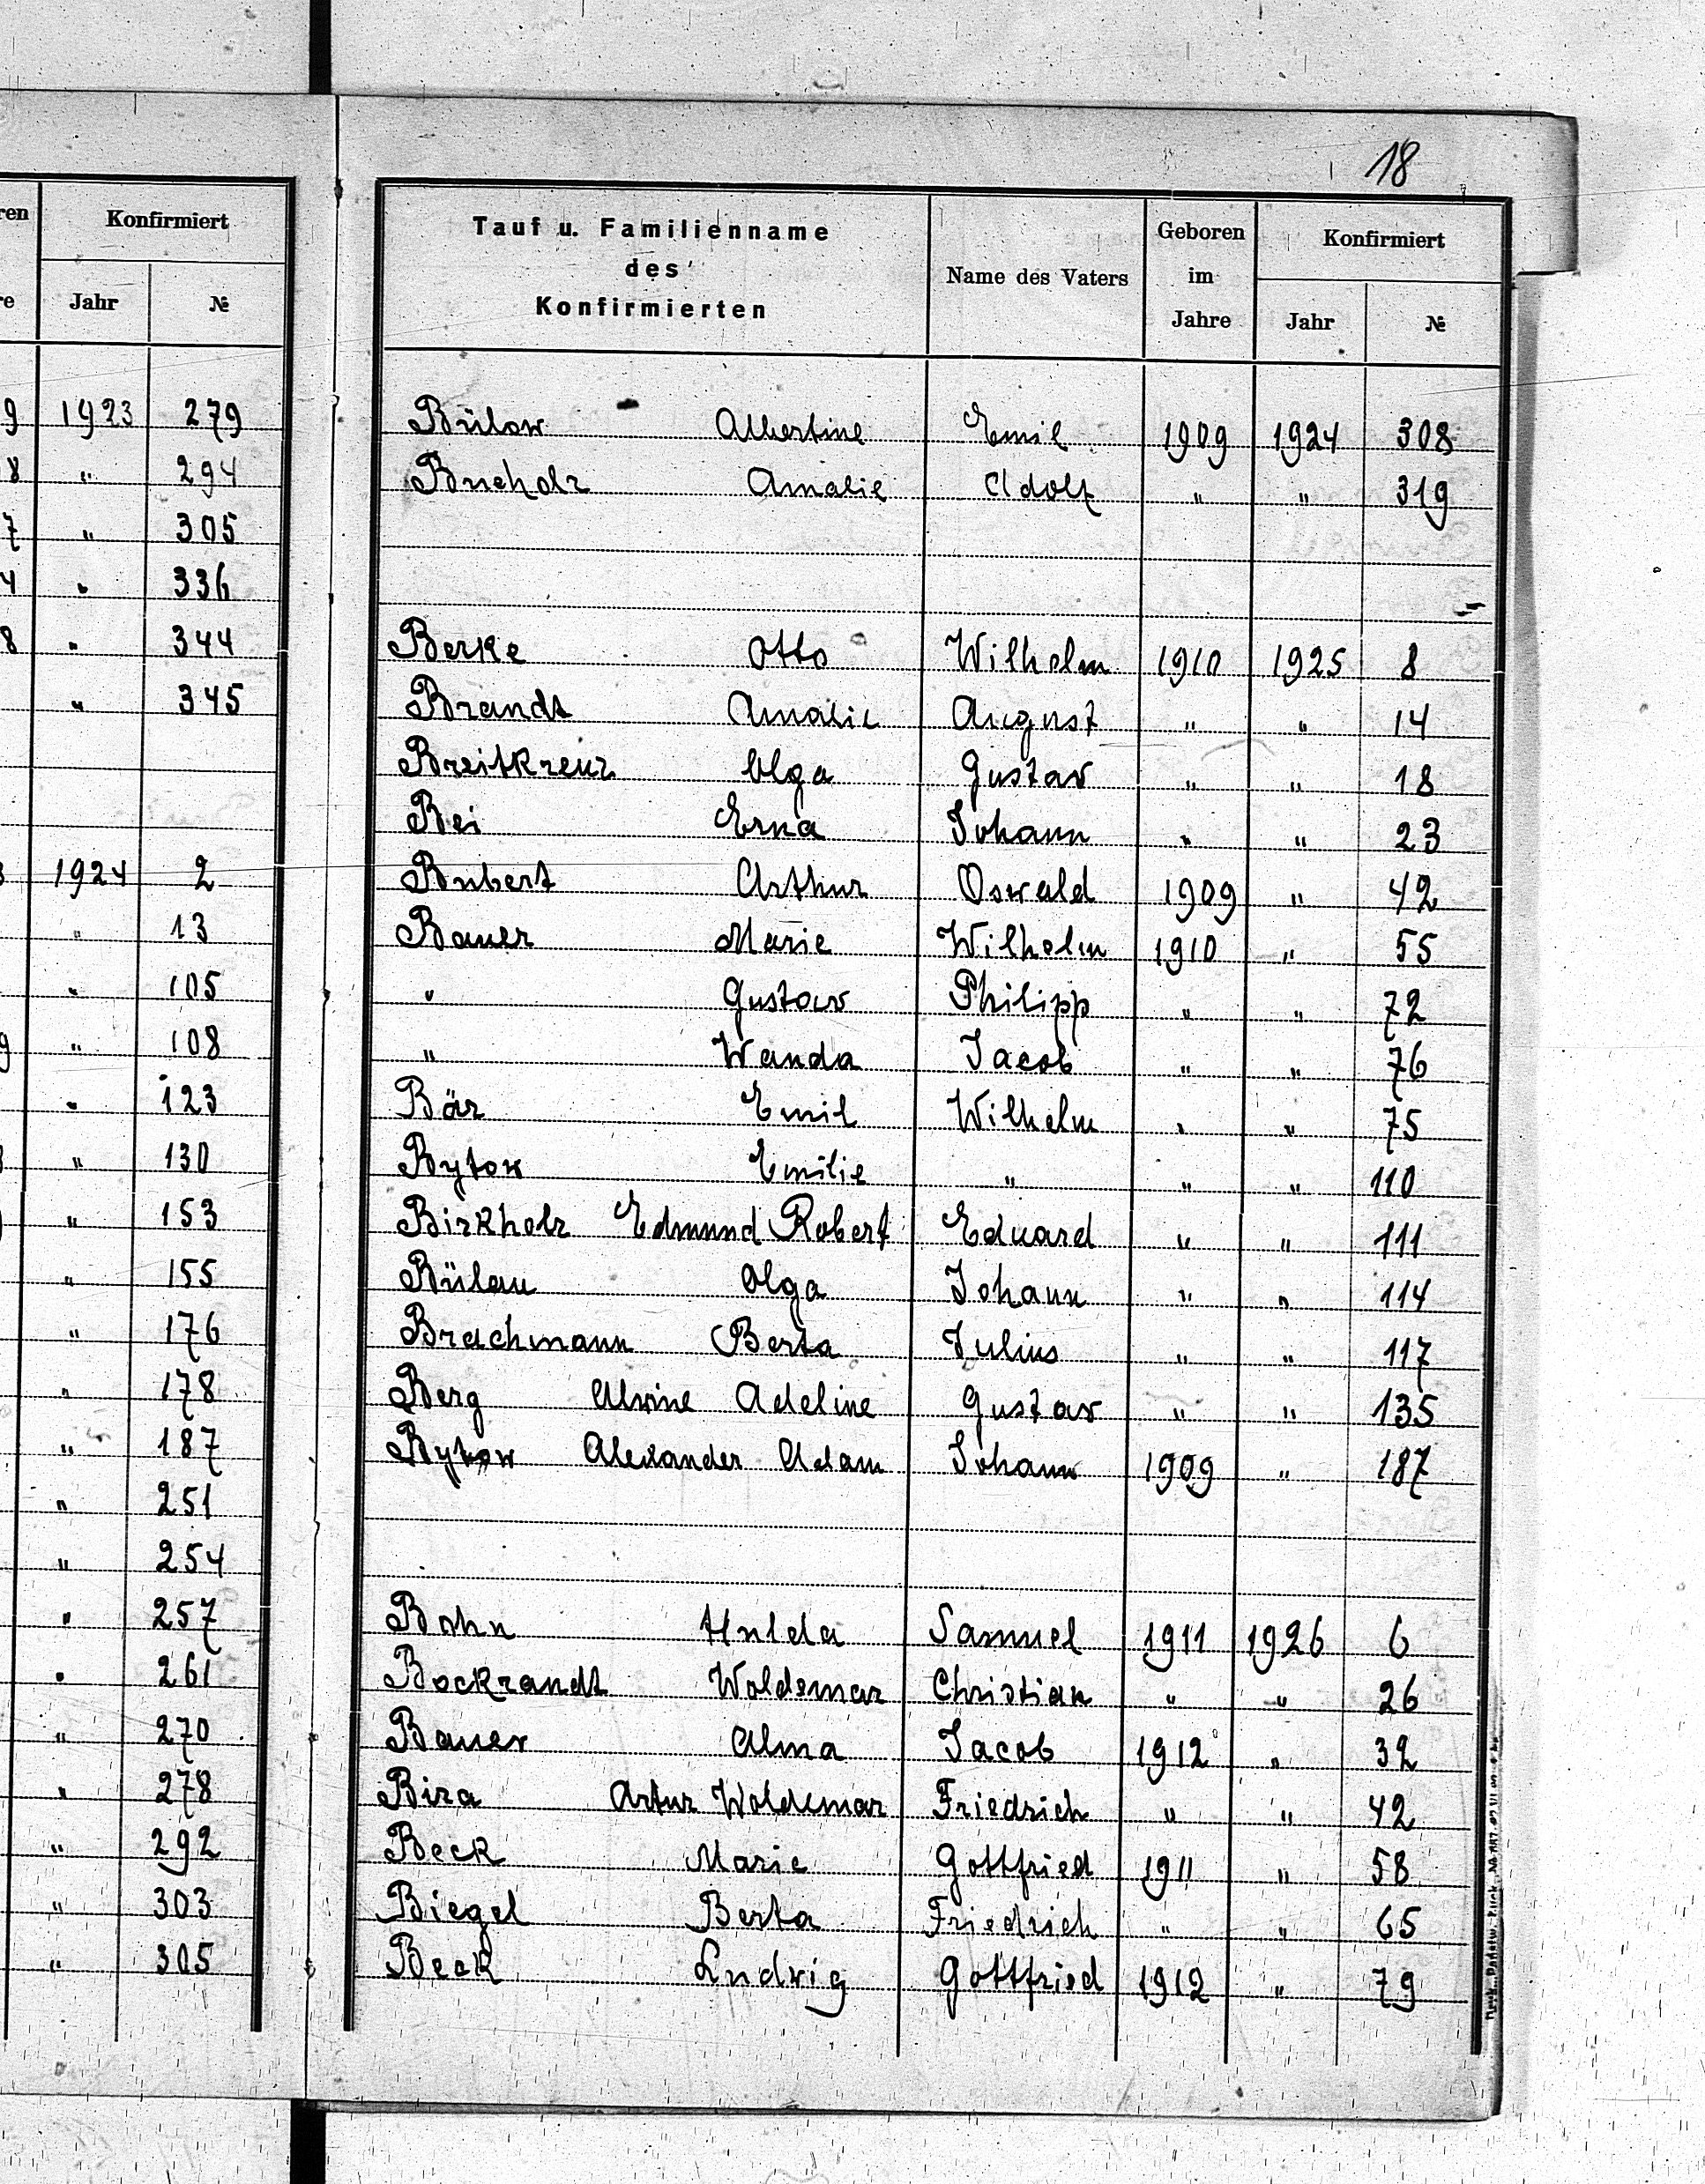 18
ren Konfirmiert
re Jahr №
9 1923 279
8 " 294
7 " 305
4 " 336
8 " 344
" 345
1924 2
" 13
" 105
9 " 108
" 123
" 130
" 153
" 155
" 176
" 178
" 187
" 251
" 254
" 257
" 261
" 270
" 278
" 292
" 303
" 305
Tauf u. Familienname
des
Konfirmierten
Name des Vaters
Geboren
im
Jahre
Konfirmiert
Jahr №
Bülow Albertine Emil 1909 1924 308
Bucholz Amalie Adolf " " 319
Berke Otto Wilhelm 1910 1925 8
Brandt Amalie August " " 14
Breitkreuz Olga Gustav " " 18
Bei Erna Johann " " 23
Bubert Arthur Oswald 1909 " 42
Bauer Marie Wilhelm 1910 " 55
" Gustav Philipp " " 72
" Wanda Jacob " " 76
Bär Emil Wilhelm " " 75
Bytow Emilie " " " 110
Birkholz Edmund Robert Eduard " " 111
Bülau Olga Johann " " 114
Brachmann Berta Julius " " 117
Berg Alwine Adeline Gustav " " 135
Bytow Alexander Adam Johann 1909 " 187
Bohn Hulda Samuel 1911 1926 6
Bockrandt Woldemar Christian " " 26
Bauer Alma Jacob 1912 " 32
Bira Artur Woldemar Friedrich " " 42
Beck Marie Gottfried 1911 " 58
Biegel Berta Friedrich " " 65
Beck Ludwig Gottfried 1912 " 79